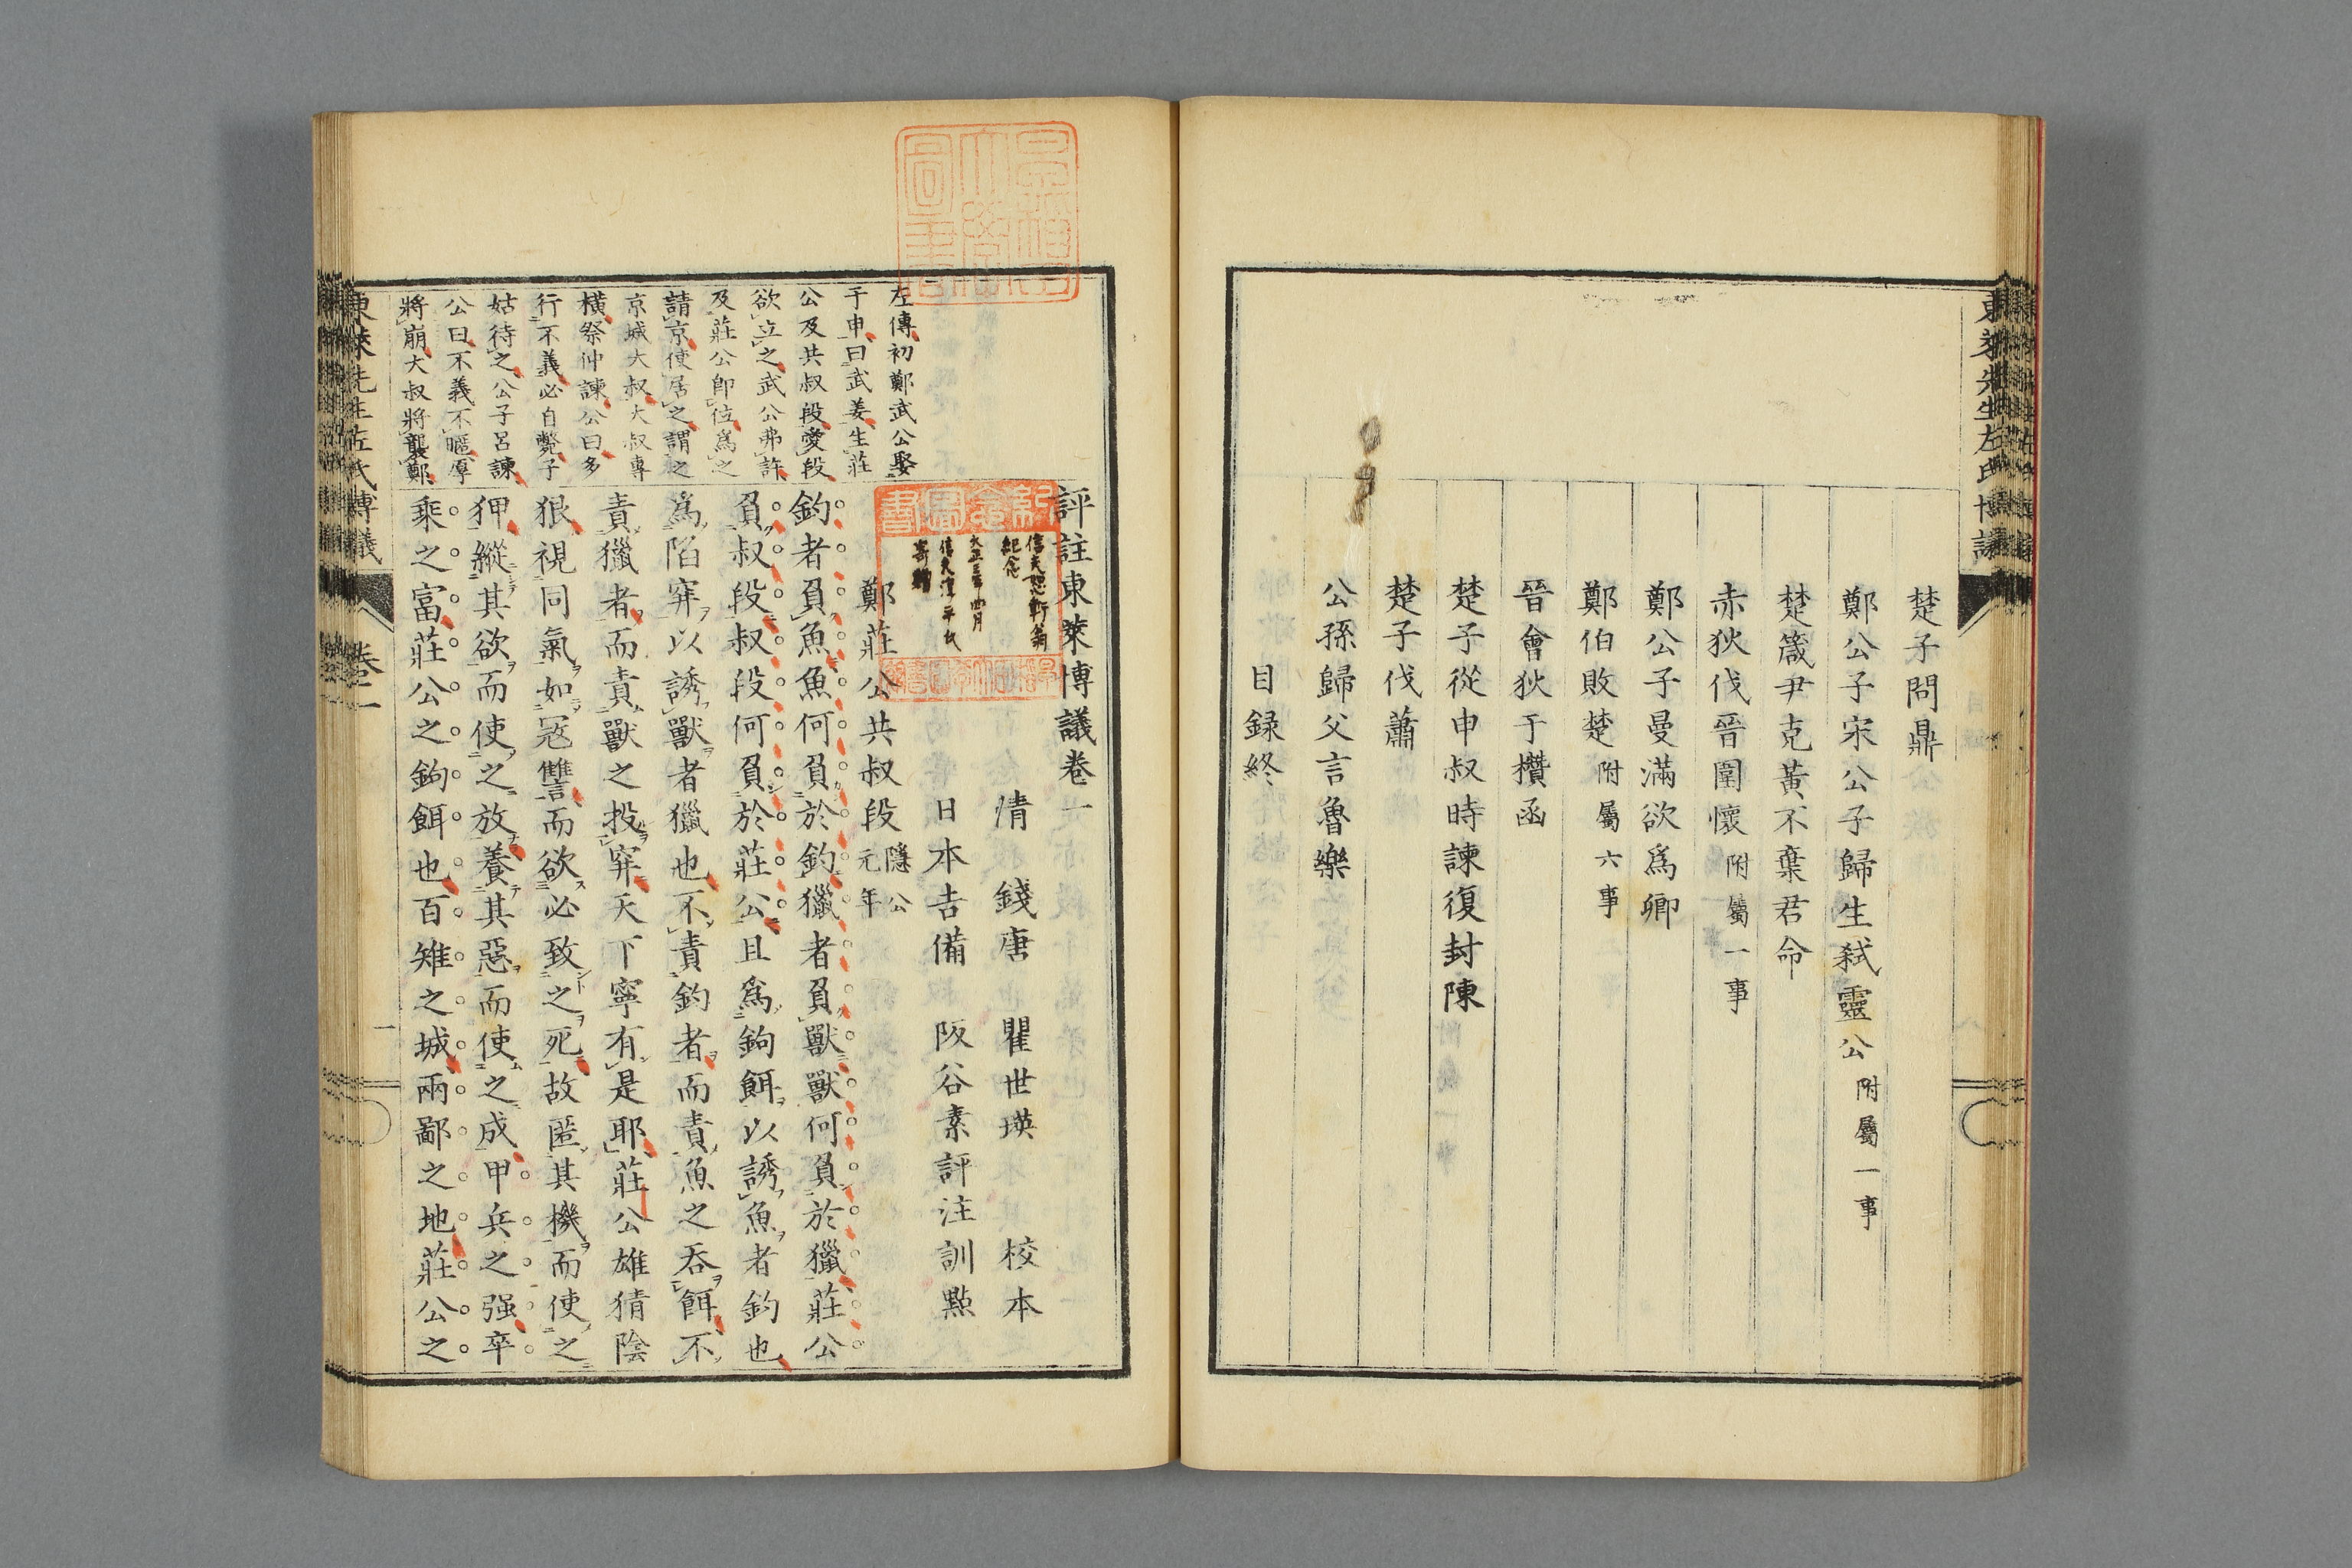 東萊先生左氏博議
楚子問鼎
鄭公子宋公子歸生弑靈公 附屬一事
楚箴尹克黃不棄君命
赤狄伐晉圍懷 附屬一事
鄭公子曼滿欲爲卿
鄭伯敗楚 附屬六事
晉會狄于欑函
楚子從申叔時諫復封陳
楚子伐蕭
公孫歸父言魯樂
目録終
評註東萊博議卷一
清 錢唐 瞿世瑛 校本
日本吉備 阪谷素評注訓點
鄭莊公共叔段 隱公元年
釣者負魚魚何負於釣獵者負獸獸何負於獵莊公
負叔段叔段何負於莊公且爲鉤餌以誘魚者釣也
爲陷穽以誘獸者獵也不責釣者而責魚之吞餌不
責獵者而責獸之投穽天下寧有是耶莊公雄猜陰
狠視同氣如寇讐而欲必致之死故匿其機而使之
狎縱其欲而使之放養其惡而使之成甲兵之强卒
乘之富莊公之鉤餌也百雉之城兩鄙之地莊公之
左傳初鄭武公娶
于申曰武姜生莊
公及共叔段愛段
欲立之武公弗許
及莊公即位爲之
請京使居之謂之
京城大叔大叔專
橫祭仲諫公曰多
行不義必自斃子
姑待之公子呂諫
公曰不義不暱厚
將崩大叔將襲鄭
東萊先生左氏博議
卷一
一
紀念圖書
紀念
大正三年四月
寄贈